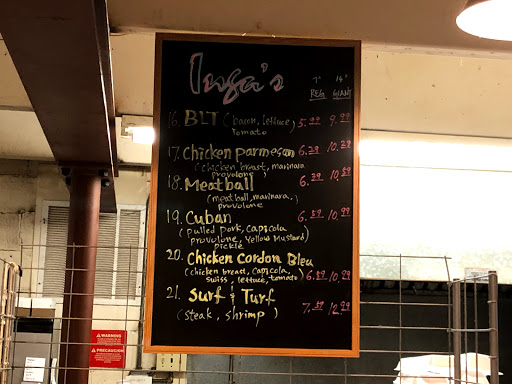 Inga's
7" 14"
REG GIANT
16. BLT (bacon, lettuce, 5.99 9.99
tomato
17. Chicken parmesan 6.39 10.39
(chicken breast, marinara
provolone )
18. Meatball 6.59 10.59
(meatball, marinara, )
provolone
19. Cuban 6.59 10.99
(pulled pork, capicola
provolone, Yellow Mustard)
pickle
20. Chicken Cordon Bleu
(chicken breast, capicola, 6.59 10.99
swiss, lettuce, tomato)
21. Surf & Turf 7.59 12.99
(steak, shrimp )
WARNING
PRECAUCION